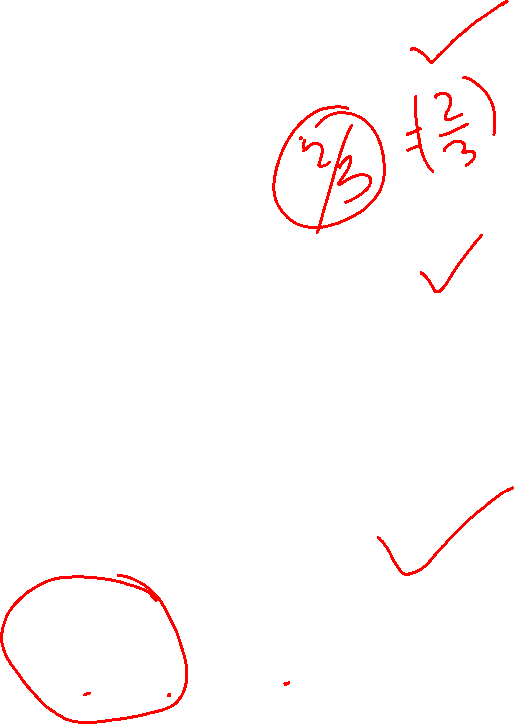 ✓
2/3 = (2/3)
✓
✓